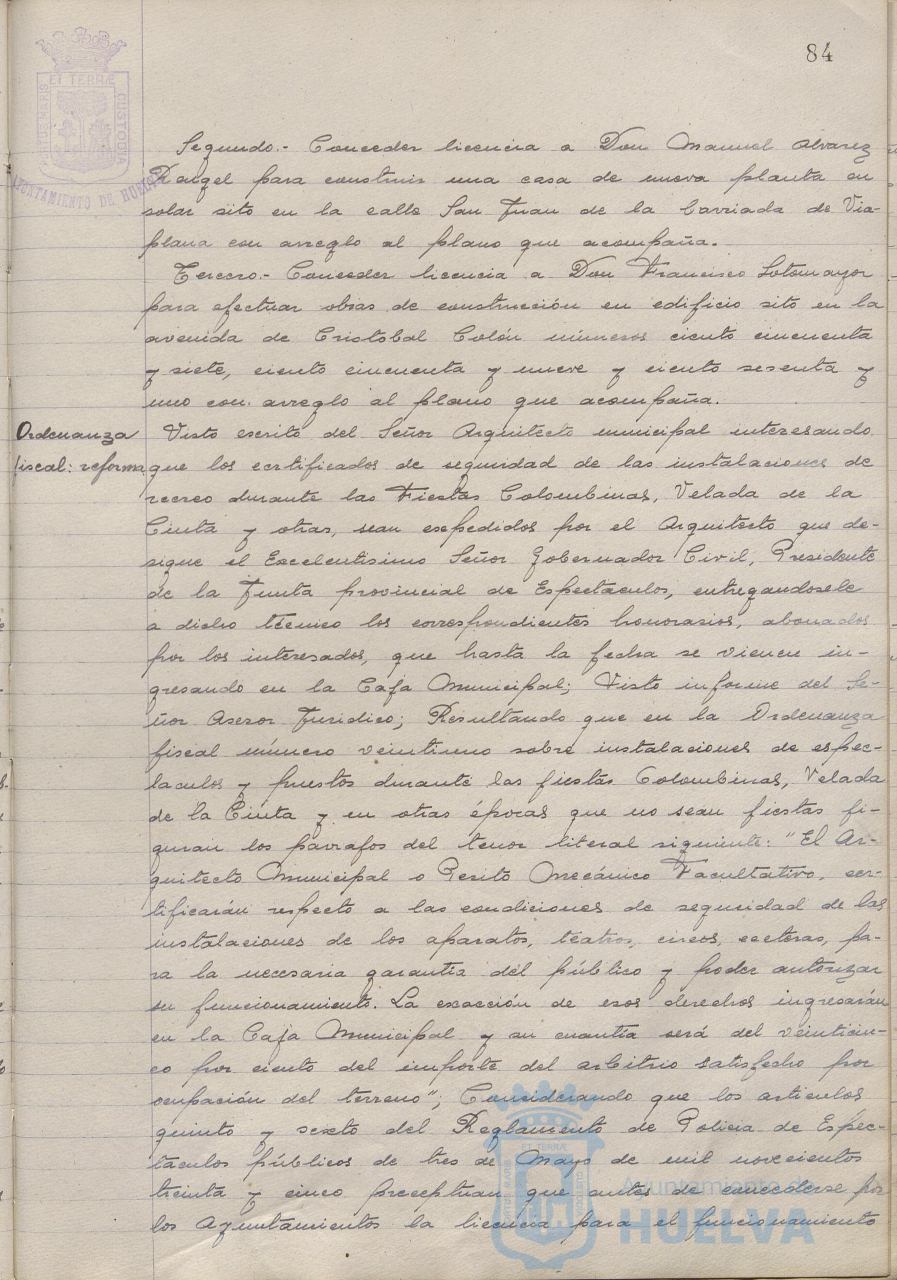 84
PORTUS MARIS ET TERRÆ CUSTODIA
AYUNTAMIENTO DE HUELVA
Segundo.- Conceder licencia a Don Manuel Alvarez
Rangel para construir una casa de nueva planta en
solar sito en la calle San Juan de la barriada de Via-
plana con arreglo al plano que acompaña.
Tercero.- Conceder licencia a Don Francisco Sotomayor
para efectuar obras de construcción en edificio sito en la
avenida de Cristobal Colón números ciento cincuenta
y siete, ciento cincuenta y nueve y ciento sesenta y
uno con arreglo al plano que acompaña.
Ordenanza
fiscal: reforma.
Visto escrito del Señor Arquitecto municipal interesando
que los certificados de seguridad de las instalaciones de
recreo durante las Fiestas Colombinas, Velada de la
Cinta y otras, sean expedidos por el Arquitecto que de-
signe el Excelentisimo Señor Gobernador Civil, Presidente
de la Junta provincial de Espectáculos, entregandosele
a dicho técnico los correspondientes honorarios, abonados
por los interesados, que hasta la fecha se vienen in-
gresando en la Caja Municipal; Visto informe del Se-
ñor Asesor Juridico; Resultando que en la Ordenanza
fiscal número veintiuno sobre instalaciones de espec-
taculos y puestos durante las fiestas Colombinas, Velada
de la Cinta y en otras épocas que no sean fiestas fi-
guran los párrafos del tenor literal siguiente: "El Ar-
quitecto Municipal o Perito Mecánico Facultativo, cer-
tificarán respecto a las condiciones de seguridad de las
instalaciones de los aparatos, teatros, circos, ecetera, pa-
ra la necesaria garantia del público y poder autorizar
su funcionamiento. La exacción de esos derechos ingresarán
en la Caja Municipal y su cuantía será del veinticin-
co por ciento del importe del arbitrio satisfecho por
ocupación del terreno"; Considerando que los articulos
quinto y sexto del Reglamento de Policia de Espec-
táculos públicos de tres de Mayo de mil novecientos
treinta y cinco preceptuan que antes de concederse por
los Ayuntamientos la licencia para el funcionamiento
Ayuntamiento de
HUELVA